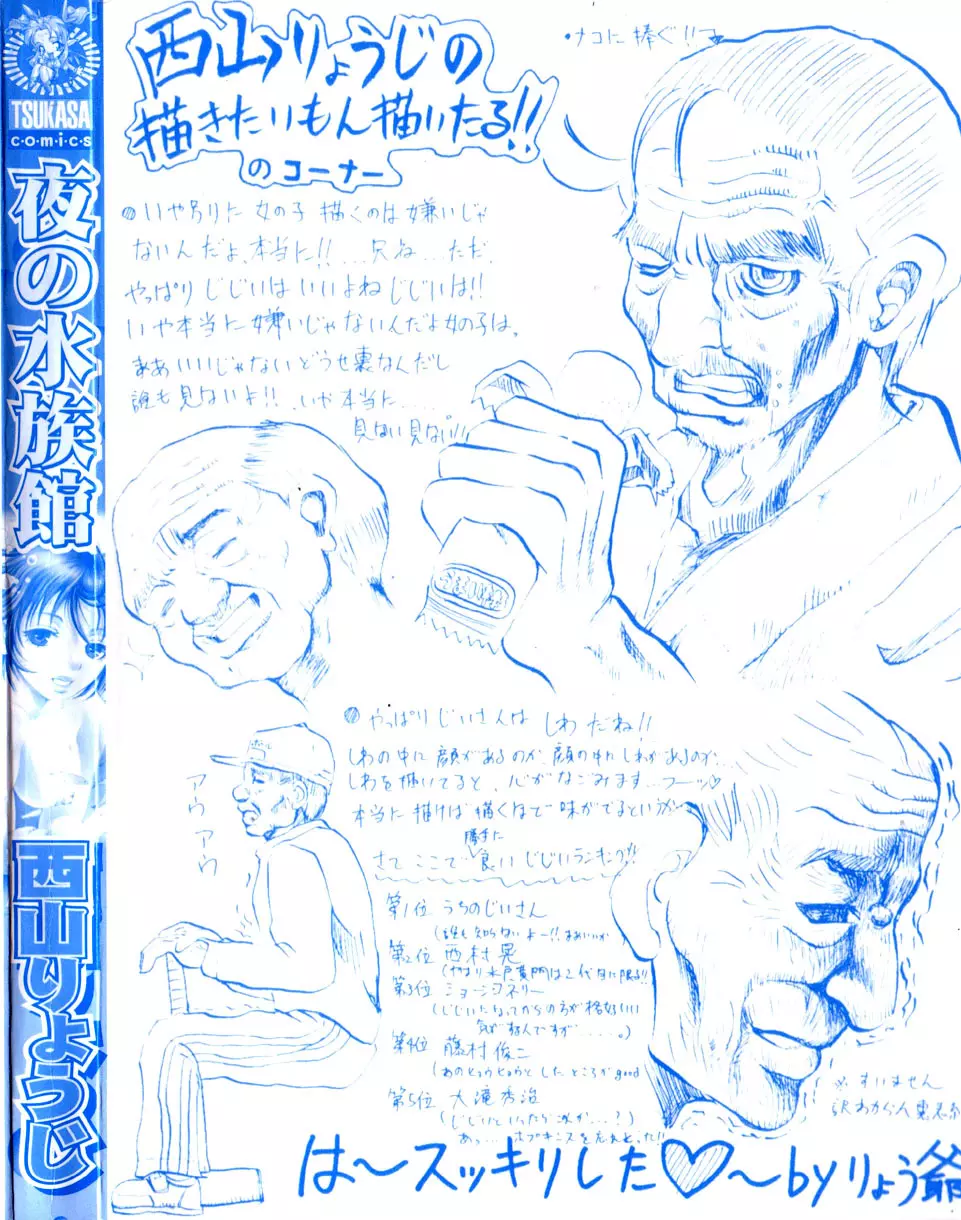 TSUKASA
comics
夜の水族館
西山りょうじ
西山りょうじの
描きたいもん描いたる!!
のコーナー
・ナコに捧ぐ!!
いや別りに女の子描くのは嫌いじゃ
ないんだよ、本当に!!...只ね...ただ、
やっぱりじじいはいいよねじじいは!!
いや本当に嫌いじゃないんだよ女の子は、
まあいいじゃないどうせ裏なんだし
誰も見ないよ!!、いや本当に.....
見ない見ない!!
やっぱりじいさんはしわだね!!
しわの中に顔があるのか、顔の中にしわがあるのか...
しわを描いてると、心がなごみます...フーッ♡
本当に描けば描くほど味がでるというか
勝手に
さてここで食いじじいランキング!!
アウアウ
第1位 うちのじいさん
(誰も知らないよー!!まあいいか)
第2位 西村晃
(やはり水戸黄門は2代目に限る!!
第3位 ショーンコネリー
(じじいになってからの方が格好いい
気がするんですが.....。)
第4位 藤村俊二
(あのヒョウヒョウとしたところがgood
第5位 大滝秀治
(じじいといったらこの人が...?)
あっ...ホプキンスを忘れとった!!
※すいません
訳わからん裏表紙
は～スッキリした♡～byりょう爺